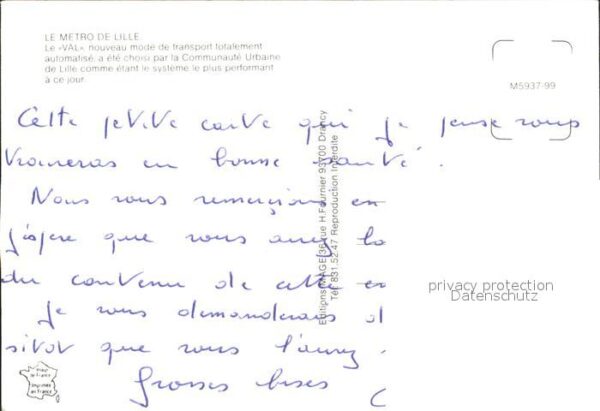 LE METRO DE LILLE
Le «VAL» nouveau mode de transport totalement
automatisé, a été choisi par la Communauté Urbaine
de Lille comme étant le système le plus performant
à ce jour.
M5937-99
Cette petite carte qui je pense vous
trouveras en bonne santé.
Nous vous remercions en
j'espère que vous avez
du contenu de cette
Je vous demanderais d
sitot que vous l'aurez.
Grosses bises
Editions IMAGE 36 rue H.Fournier 93700 Drancy
Tél. 831.52.47 Reproduction Interdite
privacy protection
Datenschutz